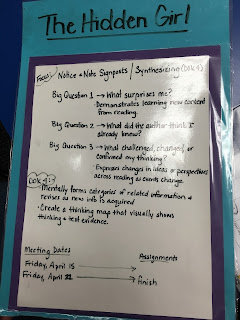 The Hidden Girl
Focus: Notice & Note Signposts / Synthesizing (DOK 4)
Big Question 1 → What surprises me?
· Demonstrates learning new content
from reading.
Big Question 2 → What did the author think I
already knew?
Big Question 3 → What challenged, changed, or
confirmed my thinking?
· Expresses changes in ideas or perspectives
across reading as events change.
DOK 4:
· Mentally forms categories of related information &
revises as new info is acquired
· Create a thinking map that visually shows
thinking & text evidence.
Meeting Dates Assignments
Friday, April 15 →
Friday, April 22 → finish